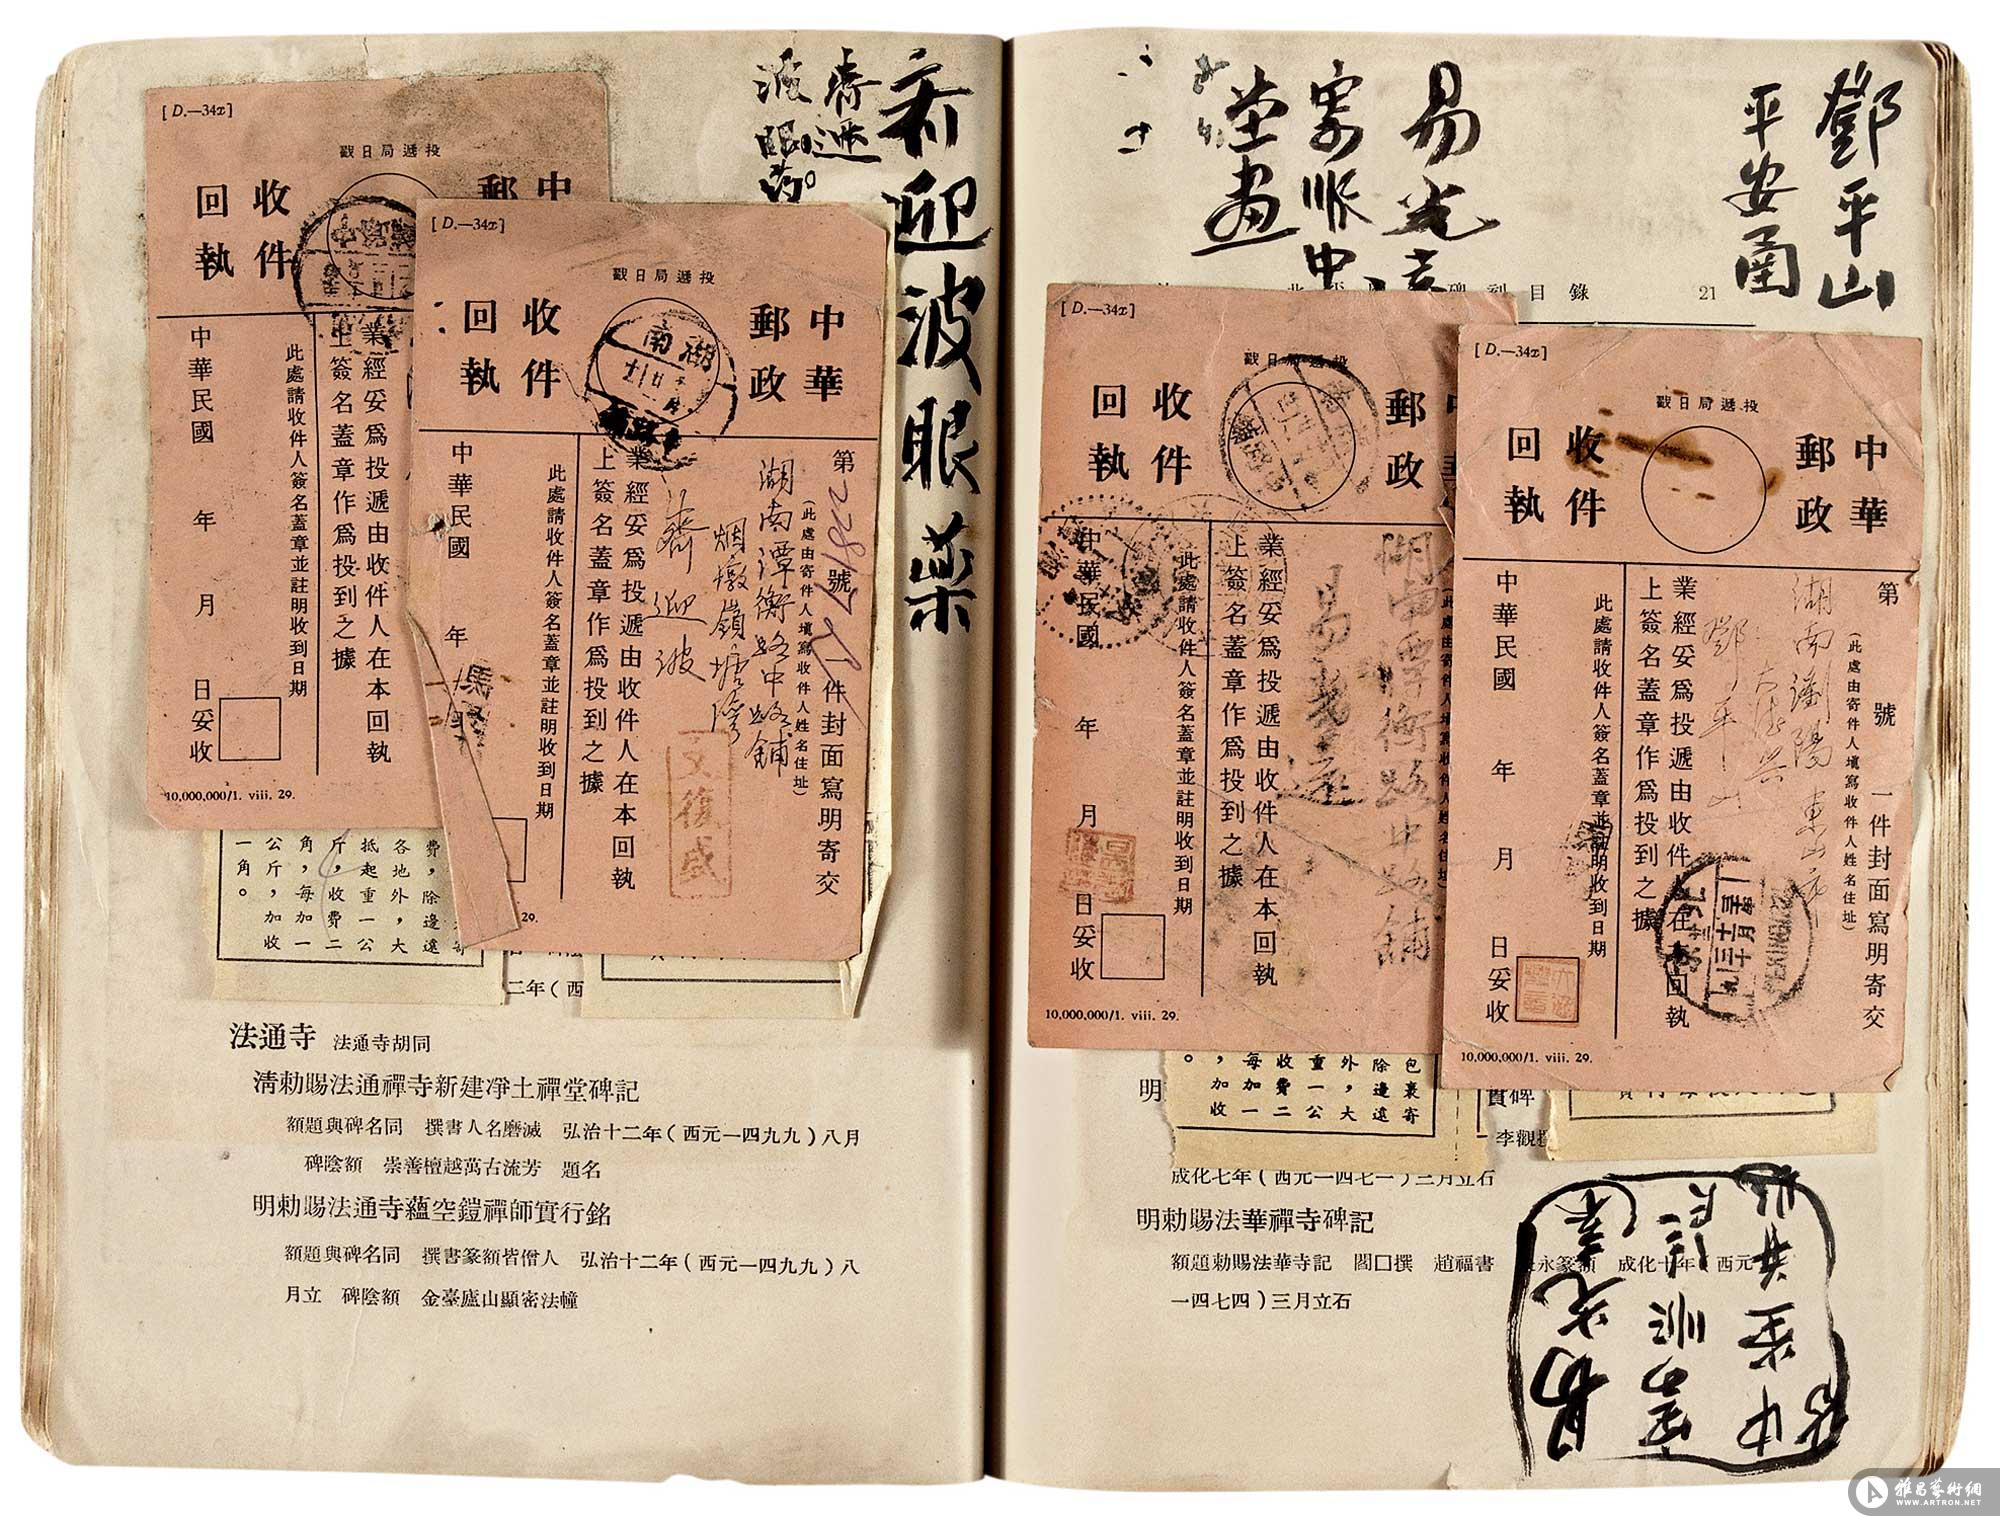 鄧平山
平安南
易光
畫
齊迎波眼藥
齊遞
波眼药。
北平 碑刻目錄 21
[D.—34x]
投遞局日戳
中
郵
收件
回執
業經妥為投遞由收件人在本回執
上簽名蓋章作為投到之據
此處請收件人簽名蓋章並註明收到日期
中華民國 年 月 日妥收
10,000,000/1. viii. 29.
[D.—34x]
投遞局日戳
中華
郵政
收件
回執
湖南
第 號 件封面寫明寄交
(此處由寄件人填寫收件人姓名住址)
湖南潭衡路中路舖
烟墩嶺塘灣
齊迎波
業經妥為投遞由收件人在本回執
上簽名蓋章作為投到之據
此處請收件人簽名蓋章並註明收到日期
中華民國 年
文復盛
29.
費,除邊遠
各地外,大
抵起重一公
斤,收費二
角,每加一
公斤,加收
一角。
二年(西
法通寺 法通寺胡同
清勅賜法通禪寺新建凈土禪堂碑記
額題與碑名同 撰書人名磨滅 弘治十二年(西元一四九九)八月
碑陰額 崇善檀越萬古流芳 題名
明勅賜法通寺蘊空鎧禪師實行銘
額題與碑名同 撰書篆額皆僧人 弘治十二年(西元一四九九)八
月立 碑陰額 金臺廬山顯密法幢
[D.—34x]
投遞局日戳
郵政
收件
回執
湖南潭衡路中路舖
易光遠
業經妥為投遞由收件人在本回執
上簽名蓋章作為投到之據
此處請收件人簽名蓋章並註明收到日期
中華民國 年 月 日妥收
10,000,000/1. viii. 29.
[D.—34x]
投遞局日戳
中華
郵政
收件
回執
第 號 一件封面寫明寄交
(此處由寄件人填寫收件人姓名住址)
湖南瀏陽東山
大 興
鄧平山
業經妥為投遞由收件人在本回執
上簽名蓋章作為投到之據
此處請收件人簽名蓋章並註明收到日期
中華民國 年 月 日妥收
10,000,000/1. viii. 29.
包裹寄
除邊遠
外,大
重一公
收費二
每加一
,加收
。
明
實碑
李觀
成化七年(西元一四七一)三月立石
明勅賜法華禪寺碑記
額題勅賜法華寺記 閻囗撰 趙福書 永篆額 成化十年 西元
一四七四)三月立石
雅昌藝術網
WWW.ARTRON.NET